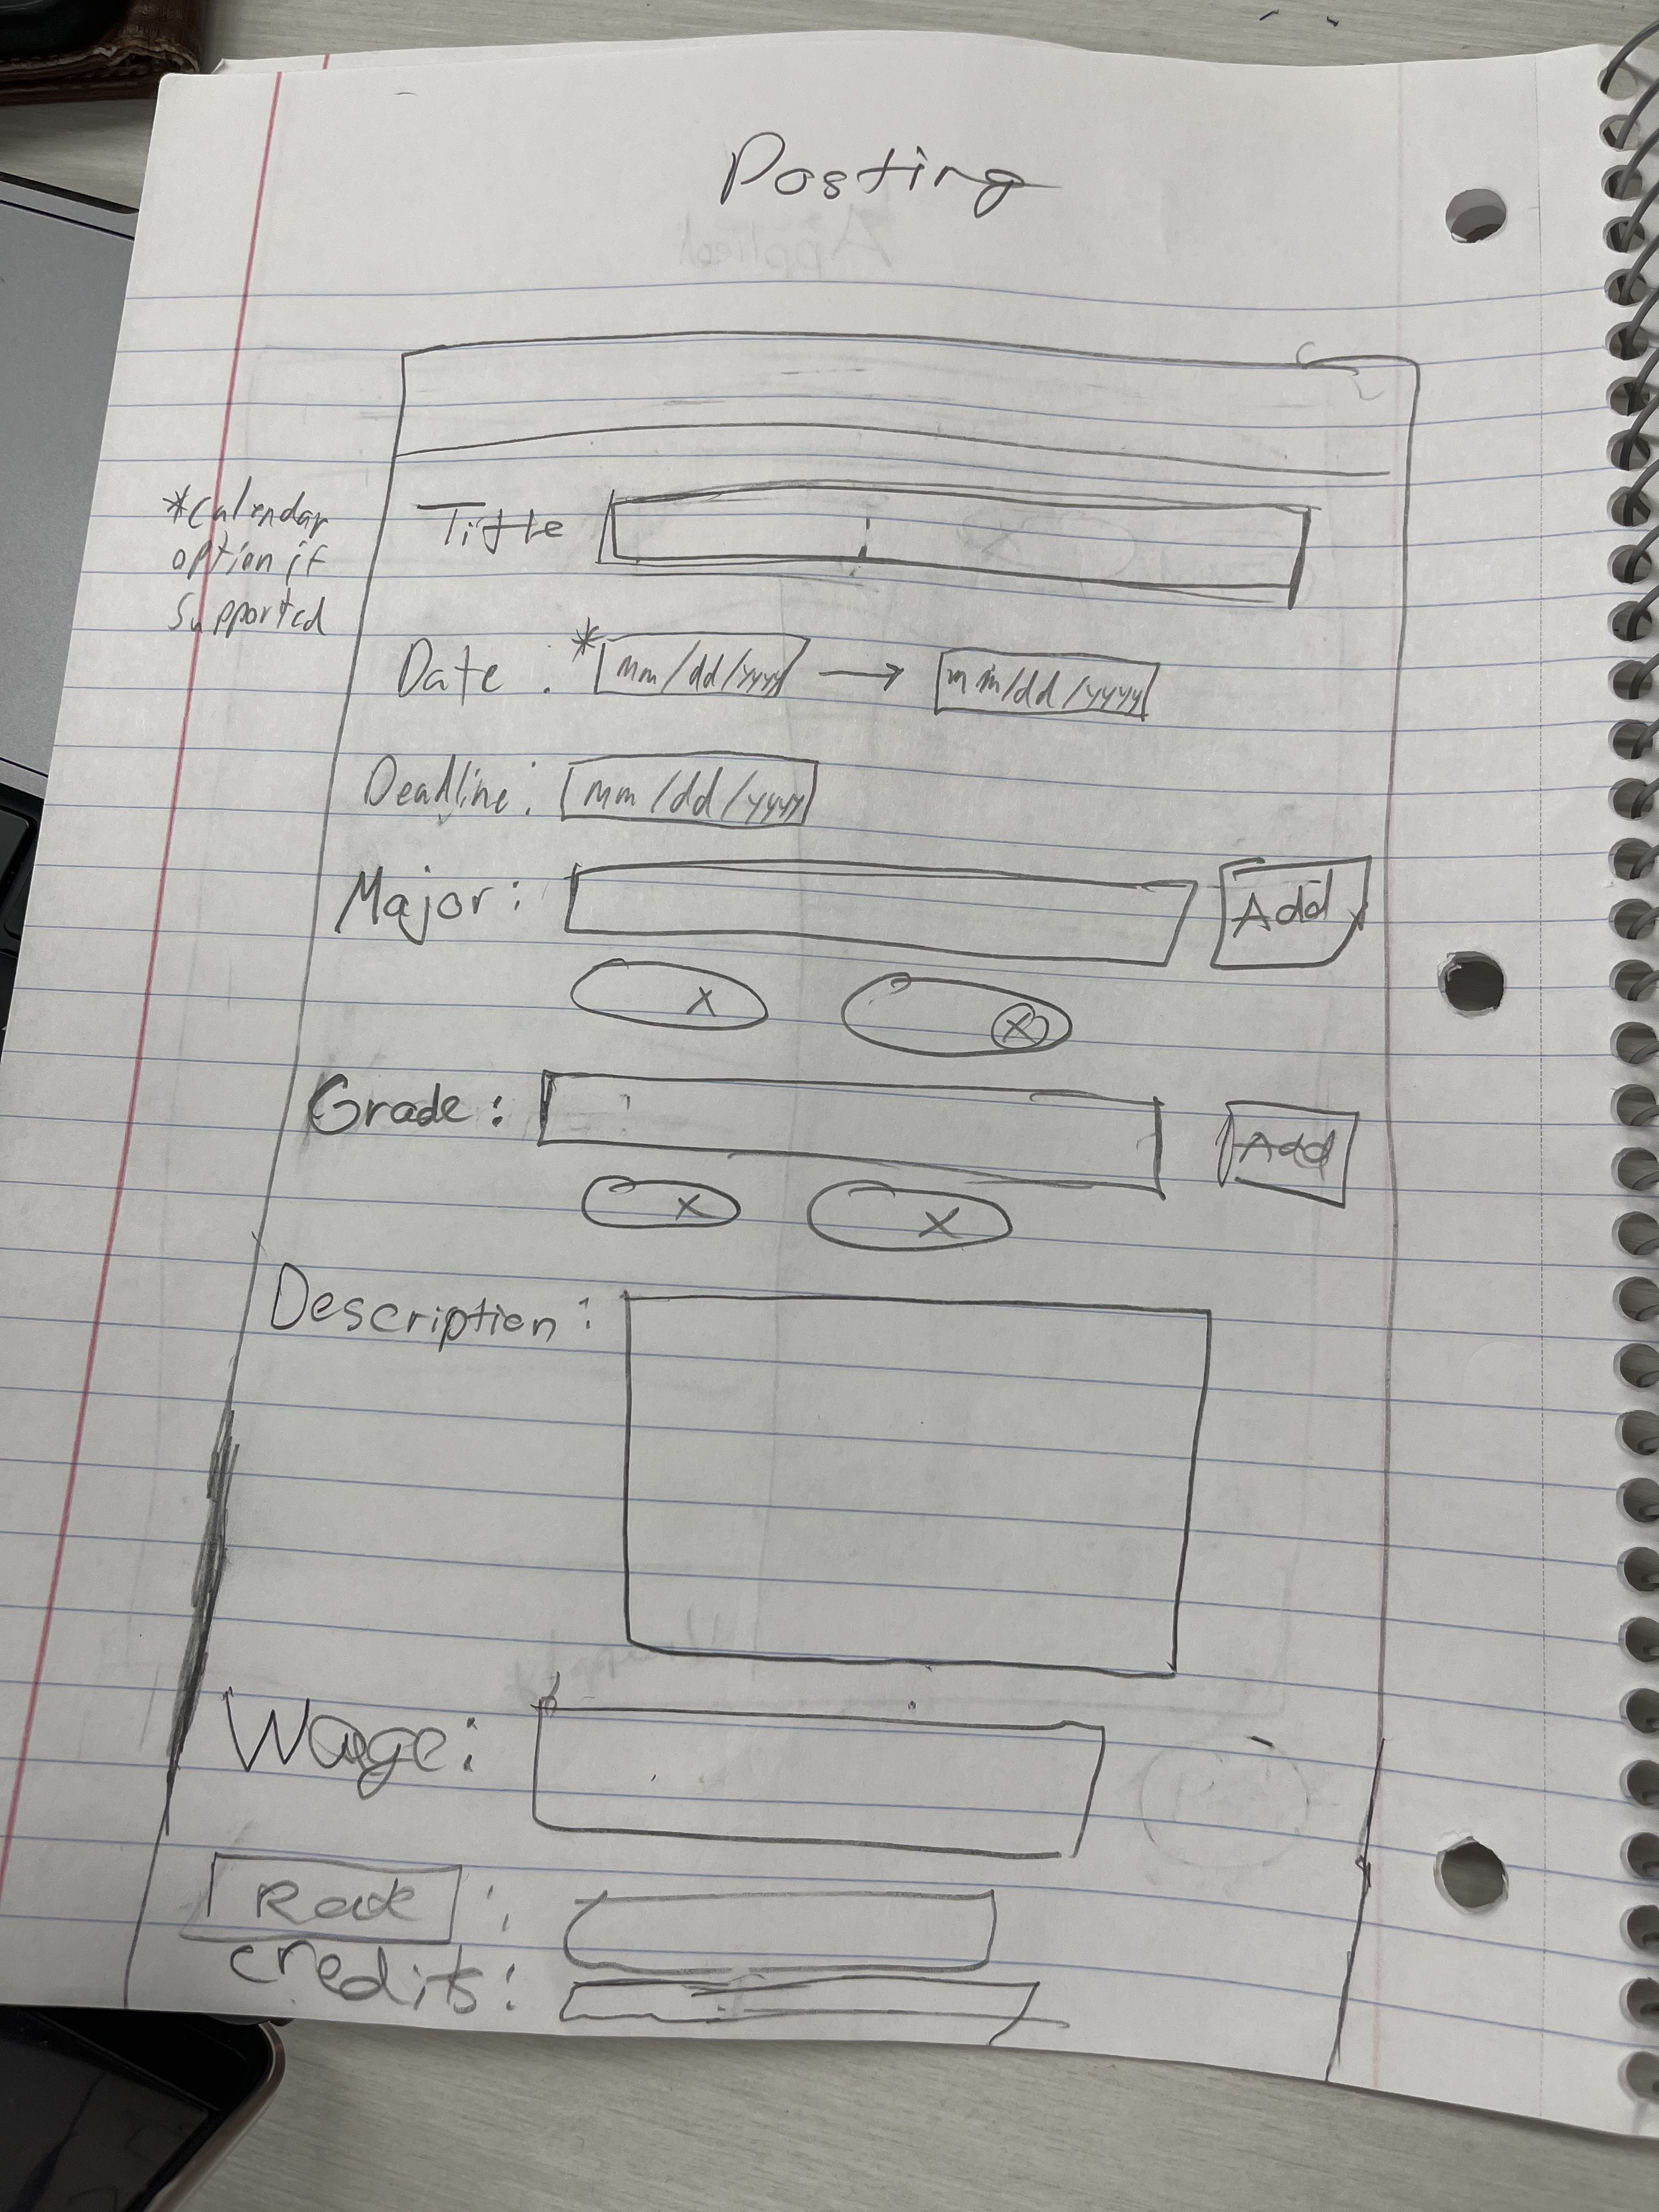 Posting
*calendar
option if
supported
Title
Date : * mm/dd/yyyy → mm/dd/yyyy
Deadline: mm/dd/yyyy
Major: Add
x x
Grade: Add
x x
Description:
Wage:
credits: